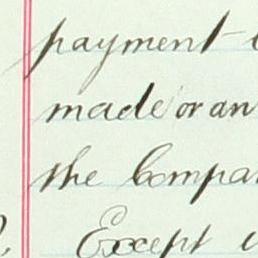 payment
made or an
the Compa
Except